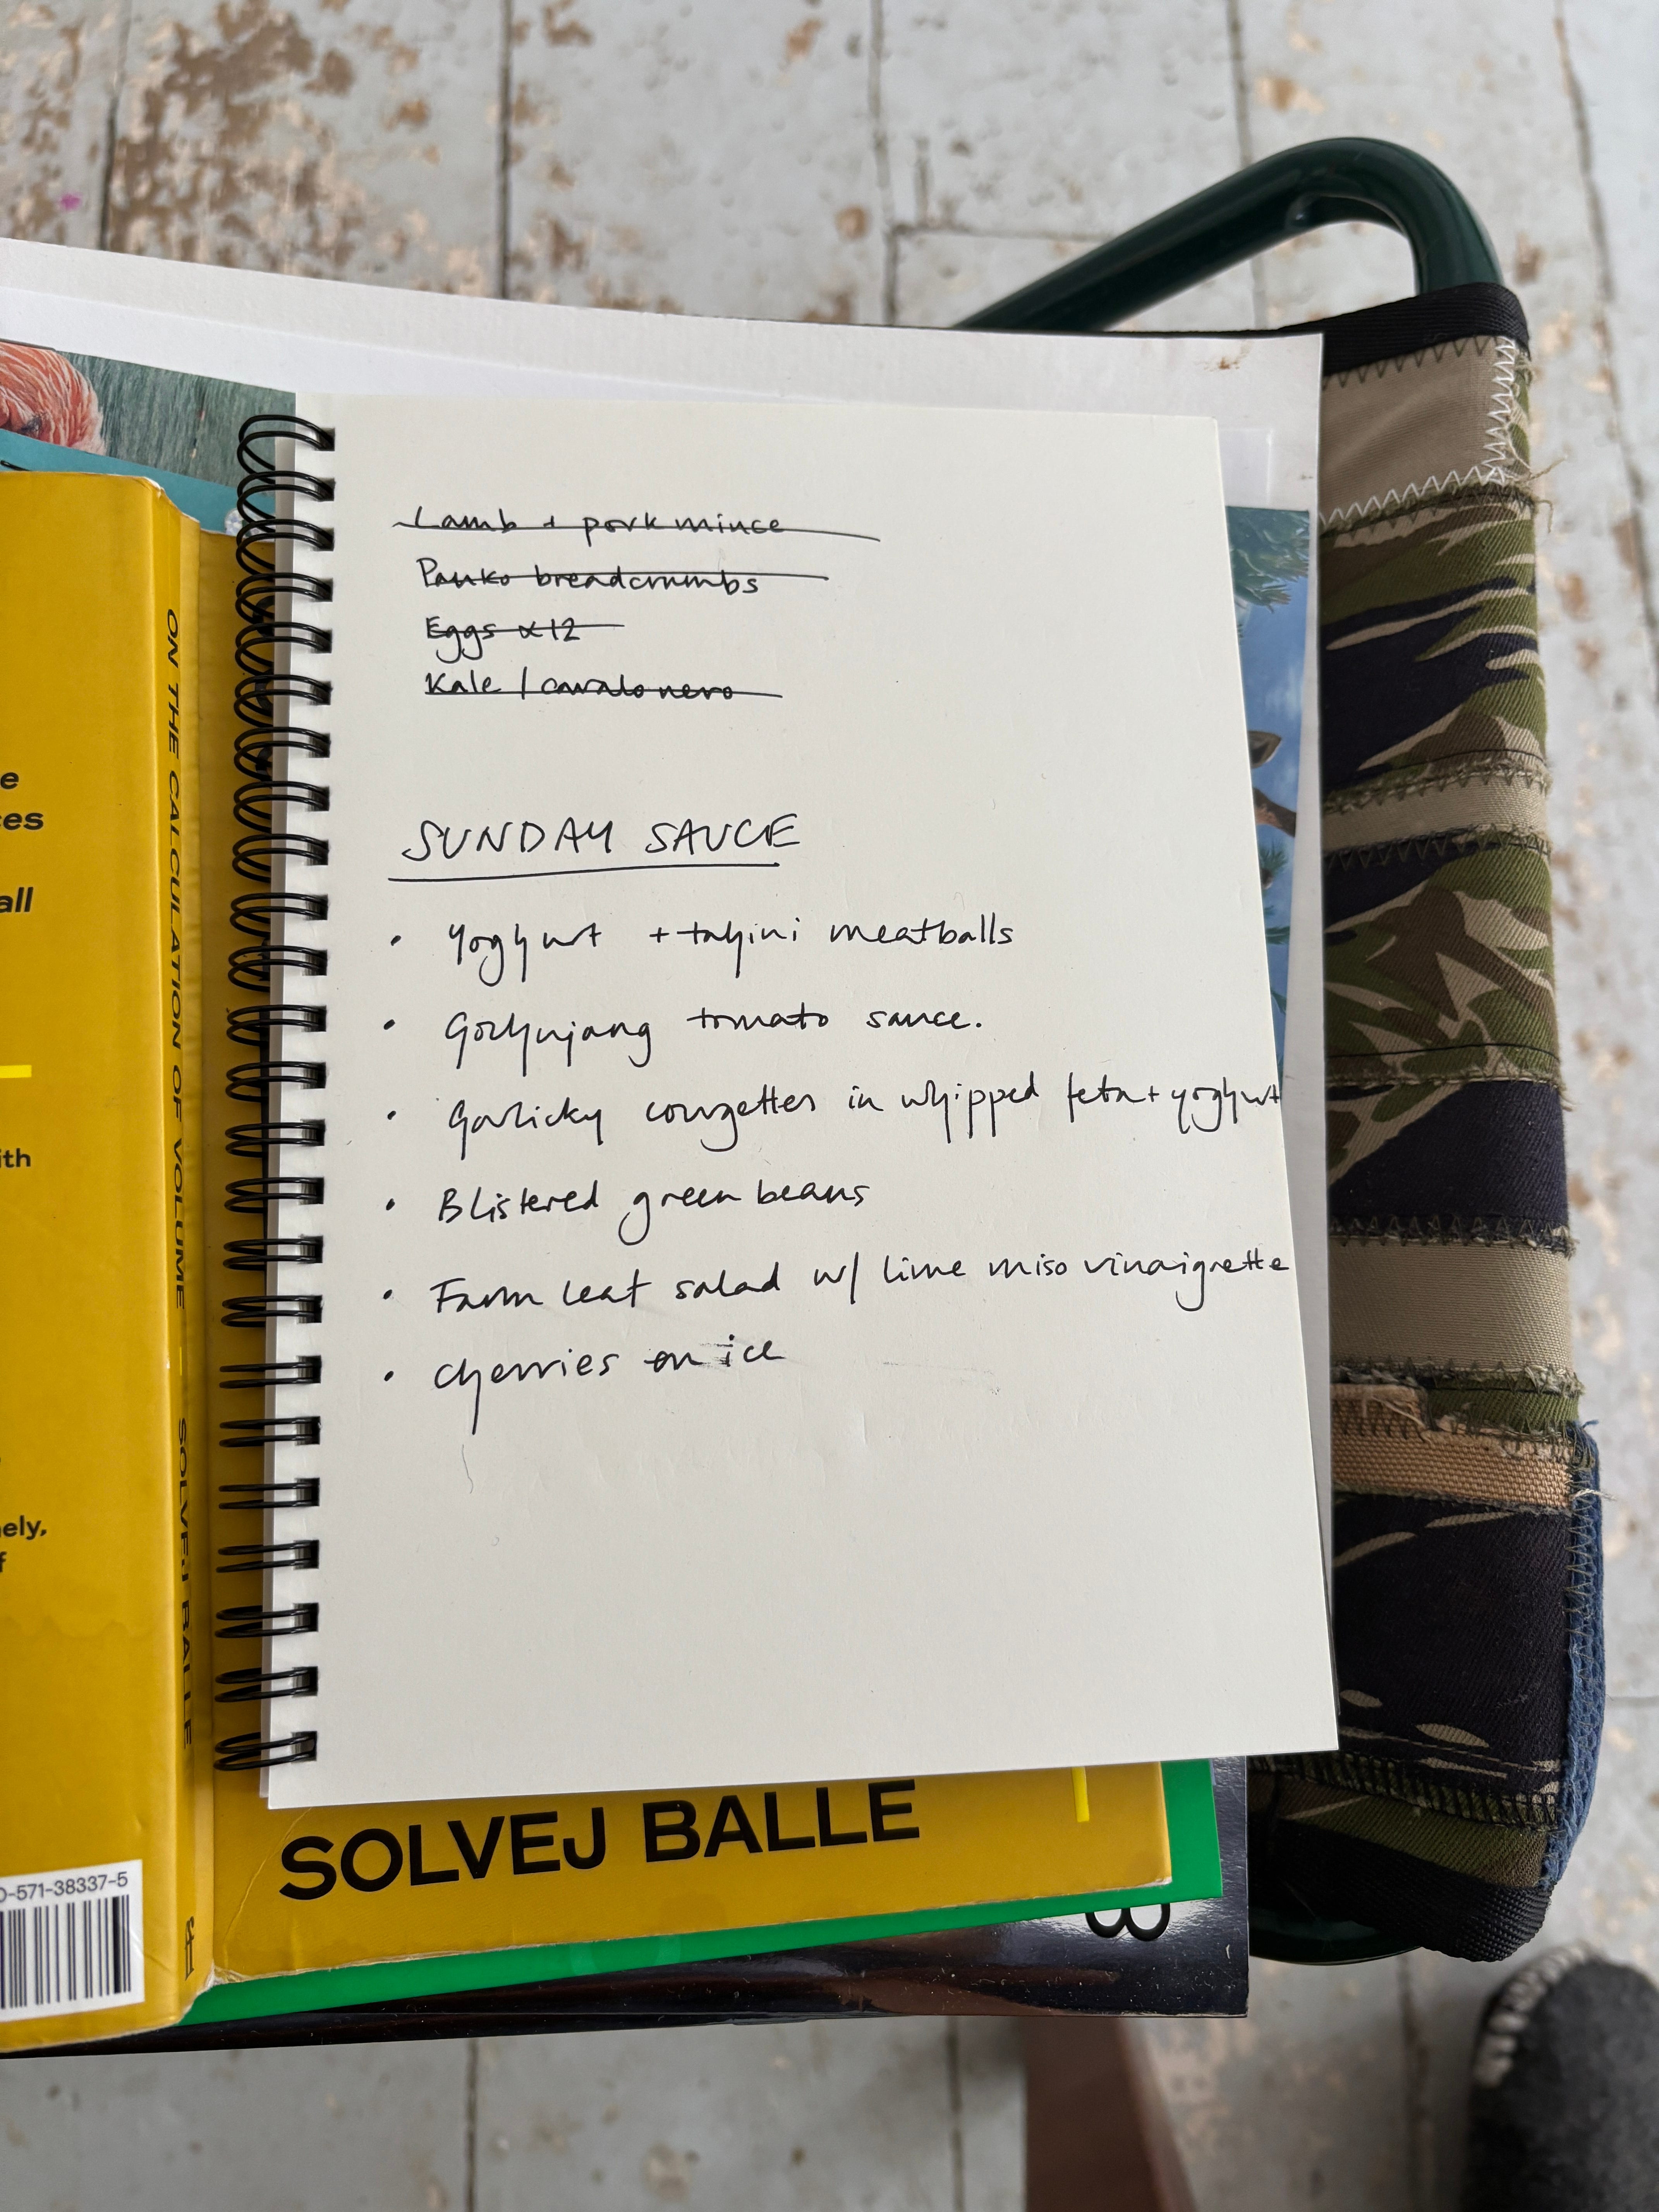 Lamb + pork mince
Panko breadcrumbs
Eggs x12
Kale / cavalo nero
SUNDAY SAUCE
• Yoghurt + tahini meatballs
• Gochujang tomato sauce.
• Garlicky courgettes in whipped feta + yoghurt
• Blistered green beans
• Farm leaf salad w/ lime miso vinaigrette
• Cherries on ice
ON THE CALCULATION OF VOLUME — SOLVEJ BALLE
all
ith
ely,
f
0-571-38337-5
SOLVEJ BALLE